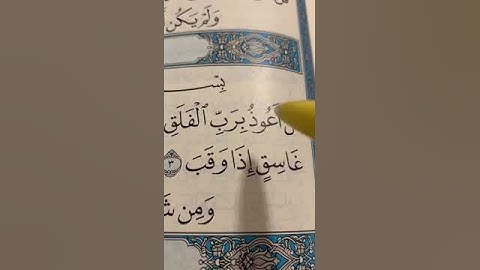 وَلَمْ يَكُن
بِسْـ
أَعُوذُ بِرَبِّ ٱلْفَلَقِ
غَاسِقٍ إِذَا وَقَبَ ٣
وَمِن